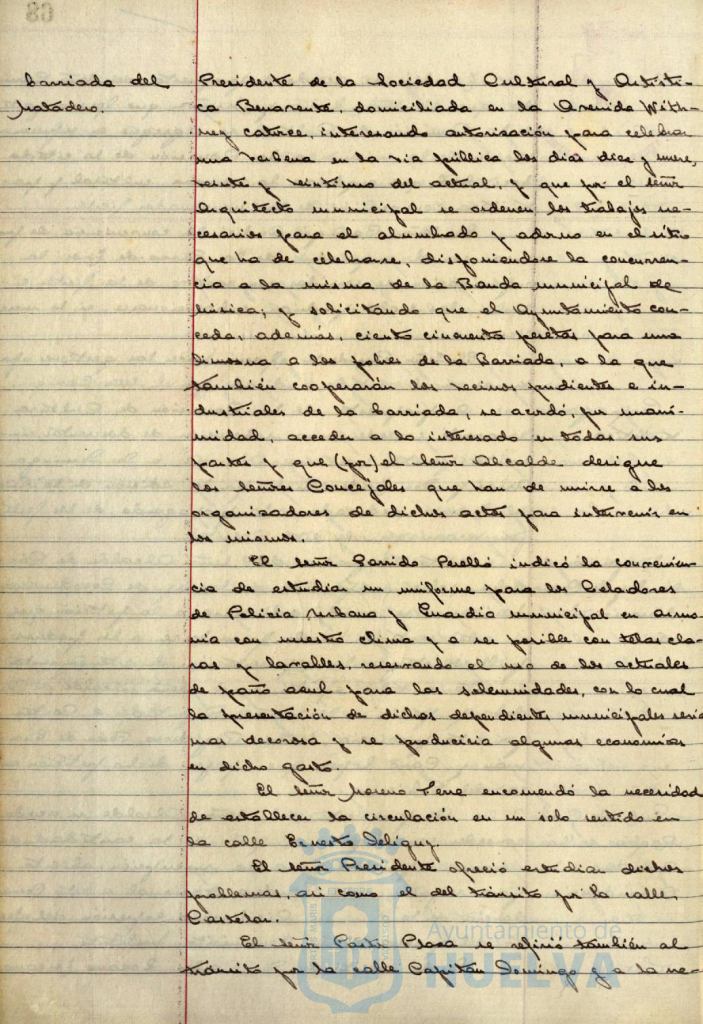 68
barriada del
Matadero.
Presidente de la Sociedad Cultural y Artísti-
ca Benavente, domiciliada en la Avenida With-
ney catorce, interesando autorización para celebrar
una verbena en la vía pública los días diez y nueve,
veinte y veintiuno del actual, y que por el señor
Arquitecto municipal se ordenen los trabajos ne-
cesarios para el alumbrado y adorno en el sitio
que ha de celebrarse, disponiendose la concurren-
cia a la misma de la Banda municipal de
Música; y solicitando que el Ayuntamiento con-
ceda, además, ciento cincuenta pesetas para una
limosna a los pobres de la Barriada, a la que
también cooperarán los vecinos pudientes e in-
dustriales de la barriada, se acordó, por unani-
midad, acceder a lo interesado en todas sus
partes y que (por) el señor Alcalde designe
los señores Concejales que han de unirse a los
organizadores de dichos actos para intervenir en
los mismos.
El señor Garrido Perelló indicó la convenien-
cia de estudiar un uniforme para los Celadores
de Policía Urbana y Guardia municipal en armo-
nía con nuestro clima y a ser posible con telas cla-
ras y lavables, reservando el uso de los actuales
de paño azul para las solemnidades, con lo cual
la presentación de dichos dependientes municipales sería
mas decorosa y se produciría algunas economías
en dicho gasto.
El señor Moreno encomendó la necesidad
de establecer la circulación en un solo sentido en
la calle Ernesto Deligny.
El señor Presidente ofreció estudiar dichos
problemas, asi como el del tránsito por la calle
Castelar.
El señor Pastor Plaza se refirió también al
tránsito por la calle Capitán Domingo y a la ne-
Ayuntamiento de
HUELVA